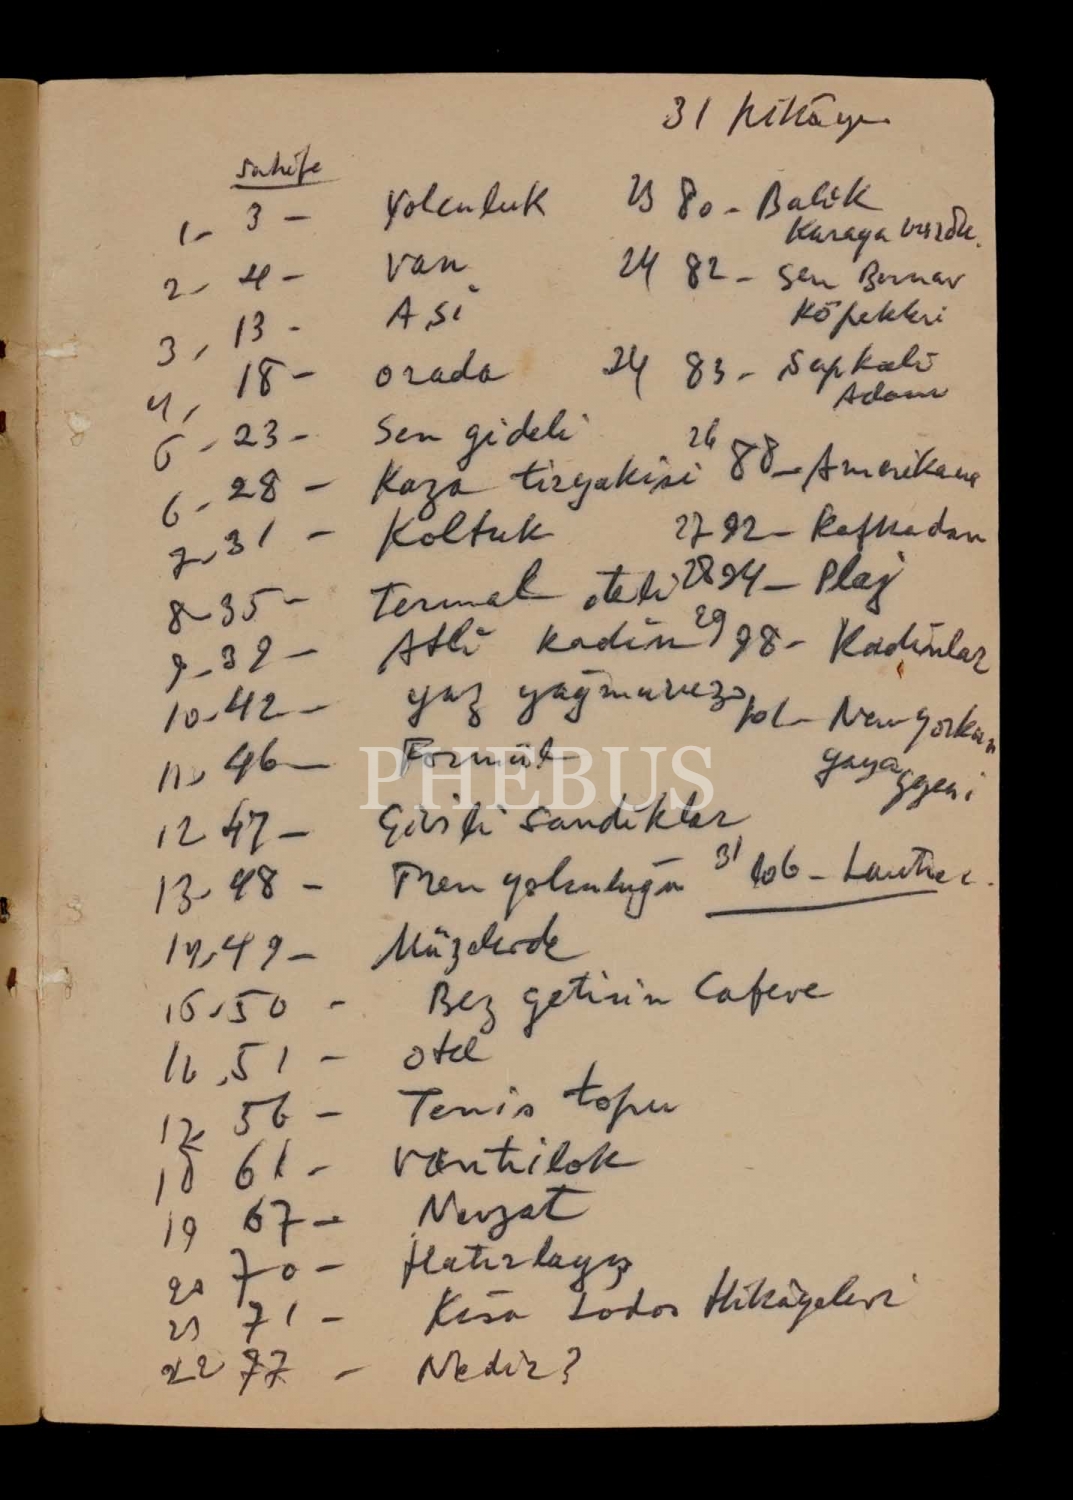 31 hikâye
sahife
1- 3 - Yolculuk
2- 4 - Van
3, 13 - Aşi
4, 18 - orada
5 - 23 - Sen gideli
6 - 28 - Kaza tiryakisi
7- 31 - Koltuk
8- 35 - Termal oteli
9- 39 - Atlı kadın
10- 42 - yaz yağmuru
11, 46 - Formül
12 47 - Gizli sandıklar
13- 48 - Tren yolculuğu
14, 49 - Müzelerde
15, 50 - Bez getirin Cafeve
16, 51 - otel
17 56 - Tenis topu
18 61 - Vantrilok
19 67 - Nevzat
20 70 - Hatırlayış
21 71 - Kısa Lodos Hikâyeleri
22 77 - Nedir?
23 80 - Balık
Karaya vurdu.
24 82 - Sen Bernar
Köpekleri
24 83 - Şapkalı
Adam
26 88 - Amerikana
27 92 - Kafkadan
28 94 - Plaj
29 98 - Kadınlar
101 - New yorkun
31 106 - Lautrec.
PHEBUS